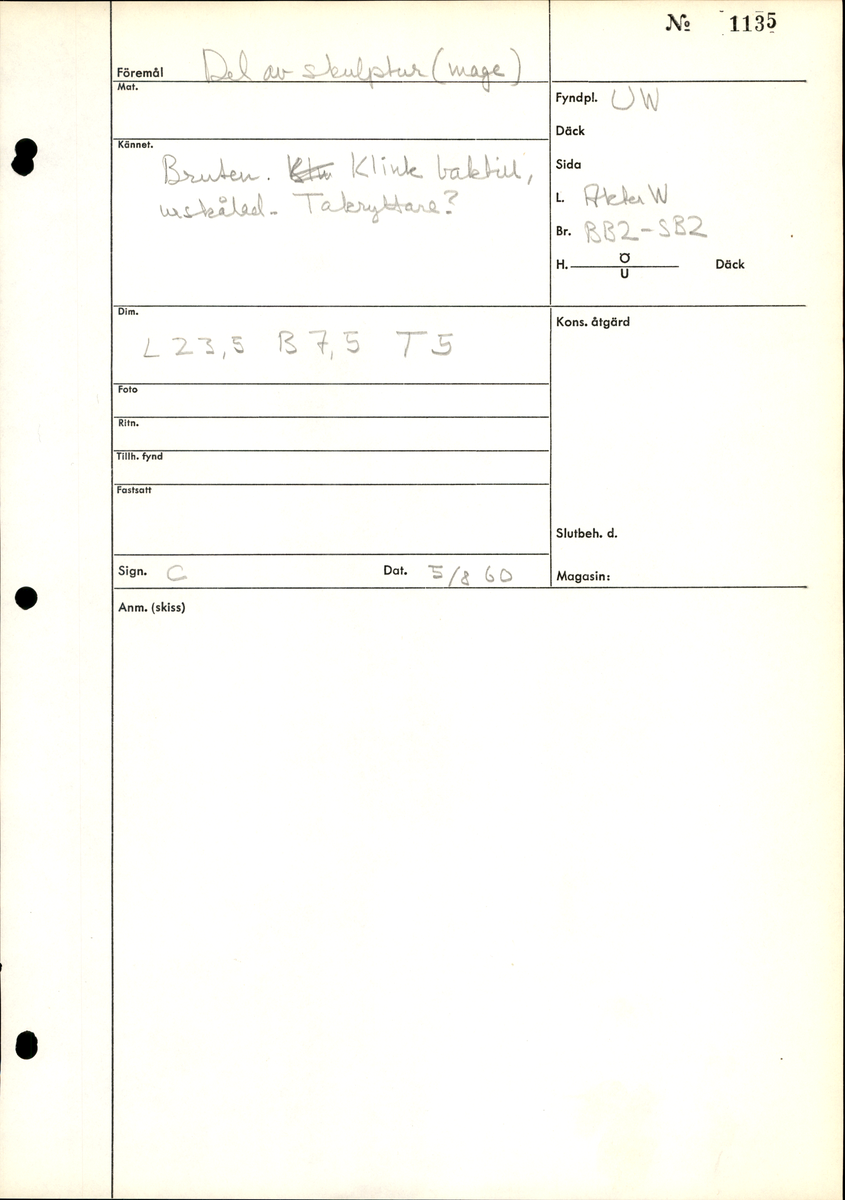 № 1135
Föremål Del av skulptur (mage)
Mat.
Kännet.
Bruten. Klink baktill,
urskålad. Takryttare?
Dim.
L 23,5 B 7,5 T 5
Foto
Ritn.
Tillh. fynd
Fastsatt
Sign. C Dat. 5/8 60
Fyndpl. UW
Däck
Sida
L. Akter W
Br. BB2-SB2
H. Ö/U Däck
Kons. åtgärd
Slutbeh. d.
Magasin:
Anm. (skiss)